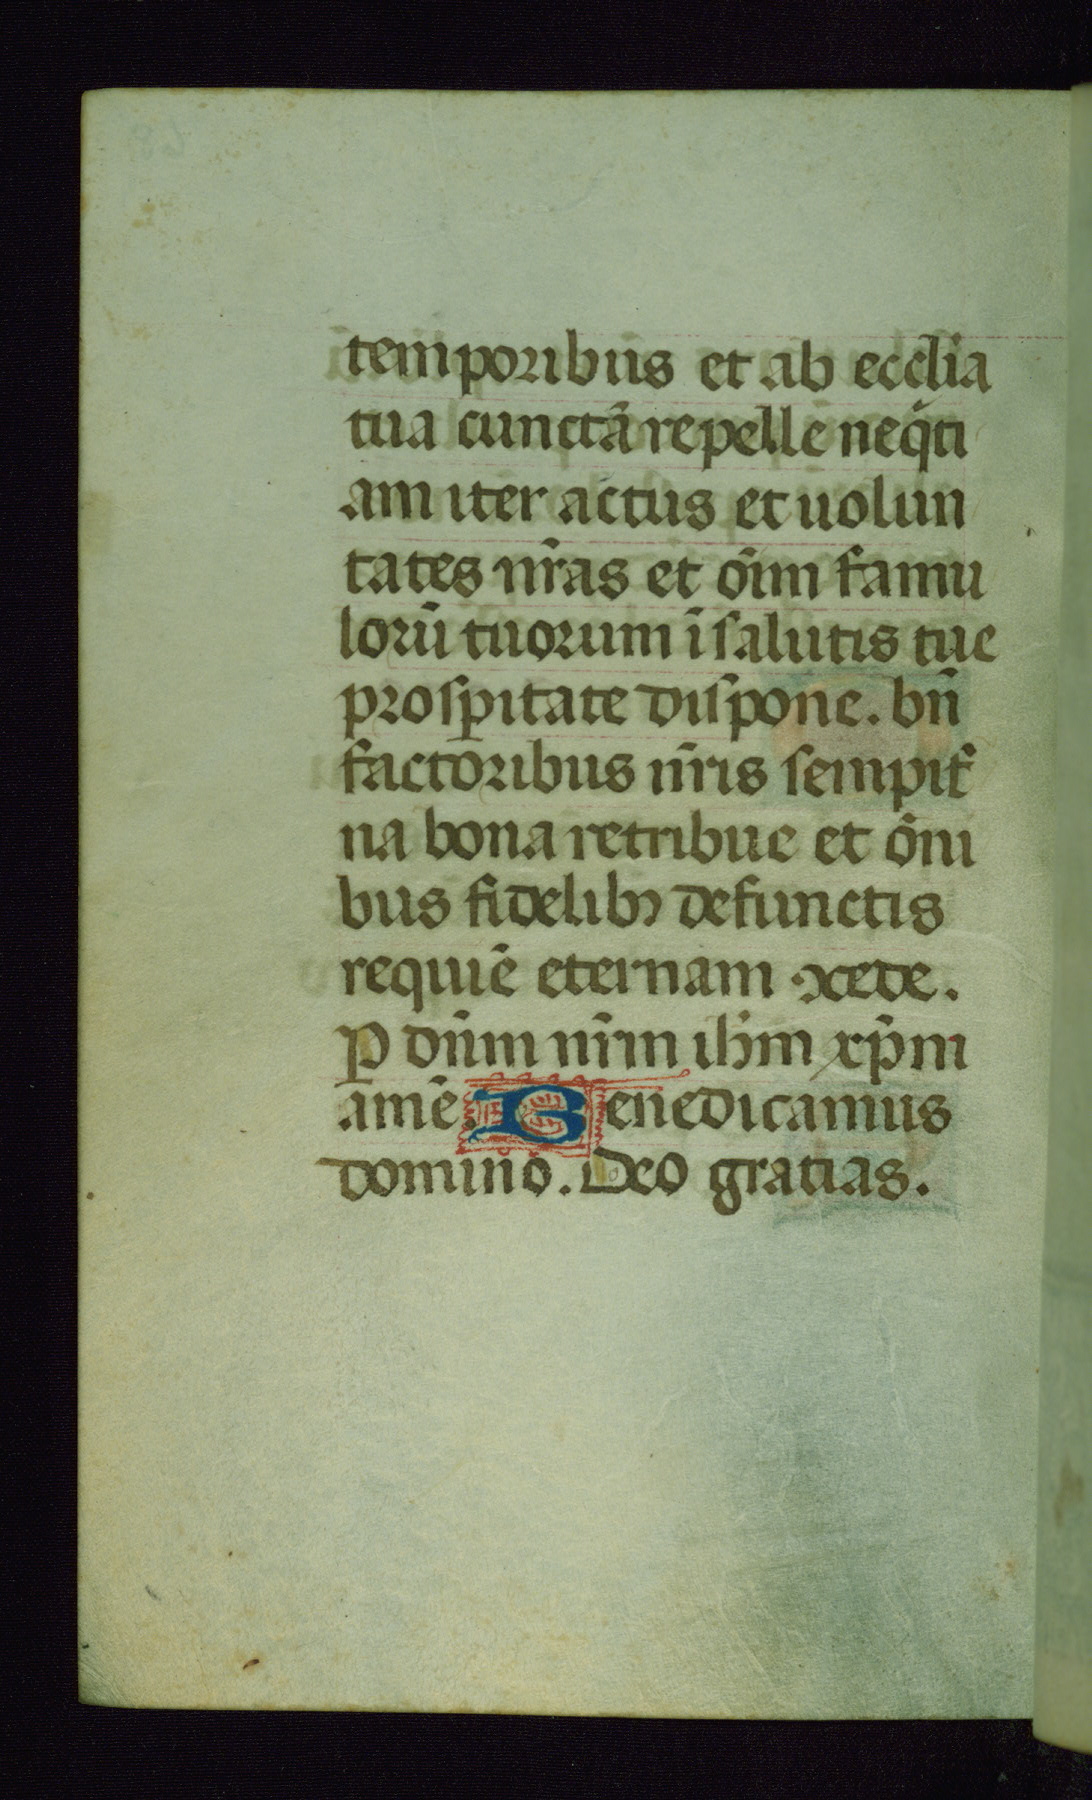 temporibus et ab ecclia
tua cunctā repelle neq̇ti
am iter actus et uolun
tates nr̄as et oīm famu
lorū tuorum ī salutis tue
prosꝑitate dispone. bn̄
factoribus nr̄is sempit̄
na bona retribue et om̄i
bus fidelibꝫ defunctis
requiē eternam ꝯcede.
P dn̄m nr̄m ihm̄ xp̄m
amē. Benedicamus
domino. Deo gratias.